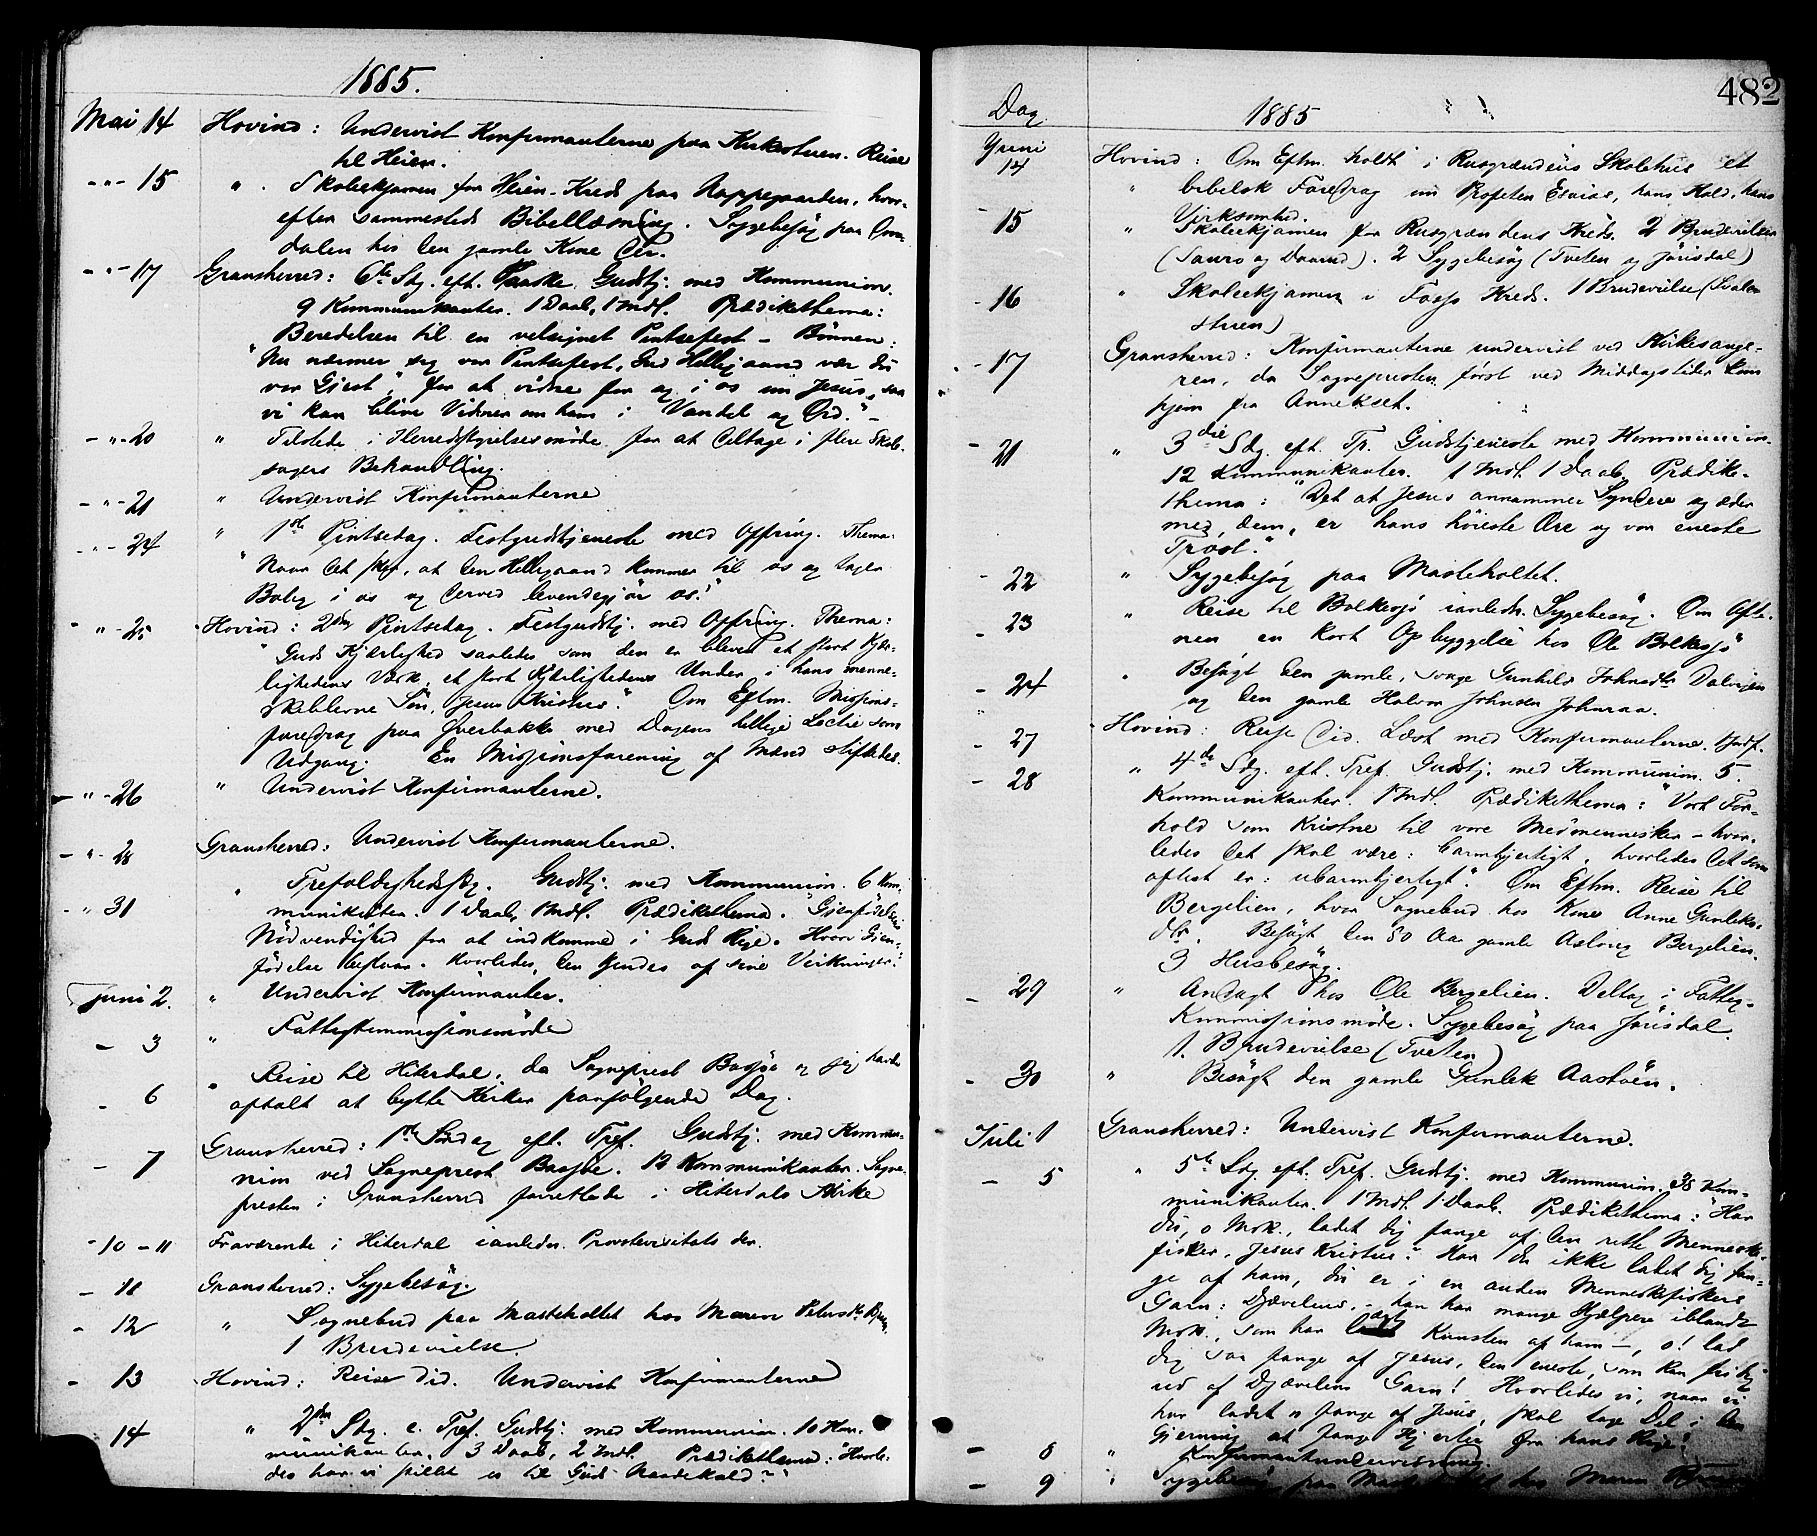 1885.
Mai 14 Hovind: Undervist Konfirmanterne paa Kirkestuen. Reise
til Heien.
-"- 15 " Skoleexamen for Heien Kreds paa Rappegaarden, hvor-
efter sammesteds Bibellæsning. Sygebesøg paa
dalen hos den gamle Kone
-"- 17 Gransherred: 6te Sdg. eft. Paaske. Gudstj. med Kommunion.
9 Kommunikanter. 1 Daab, 1 Indl. Prædikethema:
Beredelsen til en velsignet Pintsefest – Bønnen:
"Nu nærmer sig vor Pintsefest, Gud Helligaand vær du
vor Gjest", for at vidne for og i os om Jesus, saa
vi kan blive Vidner om ham i Vandel og Ord." –
-"- 20 " Tilstede i Herredsstyrelsesmøde for at deltage i flere Skole-
sagers Behandling.
-"- 21 " Undervist Konfirmanterne
-"- 24 " 1ste Pintsedag. Festgudstjeneste med Offring. Thema:
"Naar det sker, at den Helligaand kommer til os og tager
Bolig i os og derved levendegjør os."
-"- 25 Hovind: 2den Pintsedag. Festgudstj. med Offring. Thema:
"Guds Kjærlighed saaledes som den er bleven et stort Kjær-
lighedens Værk, et stort Kjærlighedens Under i hans menne-
skeblevne Søn, Jesus Kristus". Om Eftm. Missions-
foredrag paa Øverbakke med Dagens hellige Lectie som
Udgang. En Missionsforening af Mænd stiftedes.
-"- 26 " Undervist Konfirmanterne.
- " - 28 Gransherred: Undervist Konfirmanterne.
- " 31 " Trefoldighedssdg. Gudstj. med Kommunion. 6 Kom-
munikanter. 1 Daab, 1 Indl. Prædikethema. "Gjenfødelsens
Nødvendighed for at indkomme i Guds Rige. Hvori Gjen-
fødelse bestaar. Hvorledes den kjendes af sine Virkninger."
Juni 2. " Undervist Konfirmanter.
- 3 " Fattigkommissionsmøde
- 6 " Reise til Hiterdal, da Sogneprest Bassøe og jeg havde
aftalt at bytte Kirker paafølgende Dag.
- 7 Gransherred: 1ste Søndag eft. Tref. Gudstj. med Kommu-
nion ved Sogneprest Bassøe. 12 Kommunikanter. Sogne-
presten i Gransherred forrettede i Hiterdals Kirke
- 10 - 11 Fraværende i Hiterdal ianledn. Provstevisitats der.
- 11 Gransherred: Sygebesøg.
- 12 " Sognebud paa Masteholtet hos Maren Petersdtr
1 Brudevielse.
- 13 Hovind: Reise did. Undervist Konfirmanterne
14 " 2den Sdg. e. Tref. Gudstj. med Kommunion. 10 Kom-
munikanter. 3 Daab, 2 Indl. Prædikethema: "Hvorle-
des har vi stillet os til Guds Naadekald?"
482
Dag 1885
Juni
14 Hovind: Om Eftm. holdt i Rusgrændens Skolehus et
" bibelsk Foredrag om Profeten Esaias, hans Kald, hans
Virksomhed.
- 15 " Skoleexamen for Rusgrændens Kreds. 2 Brudevielser
(Sauro og Daarud). 2 Sygebesøg (Tveten og Jørisdal)
- 16 " Skoleexamen i Fosso Kreds. 1 Brudevielse
- 17 Gransherred: Konfirmanterne undervist ved Kirkesange-
ren, da Sognepresten først ved Middagstider kom
hjem fra Annekset.
- 21 " 3die Sdg. eft. Tr. Gudstjeneste med Kommunion.
12 Kommunikanter. 1 Indl. 1 Daab. Prædike-
thema: "Det at Jesus annammer Syndere og æder
med dem, er hans høieste Ære og vor eneste
Trøst."
- 22 " Sygebesøg paa Masteholtet.
- 23 " Reise til Bolkesjø ianledn. Sygebesøg. Om Afte-
nen en kort Opbyggelse hos Ole Bolkesjø
- 24 " Besøgt den gamle, svage Gunhild Johnsdtr
og den gamle Halvor Johnsen Johnraa.
- 27 Hovind: Reise did. Læst med Konfirmanterne.
- 28 " 4de Sdg. eft. Tref. Gudstj. med Kommunion. 5
Kommunikanter. 1 Indl. Prædikethema: "Vort For-
hold som Kristne til vore Medmennesker – hvor-
ledes det skal være: barmhjertigt, hvorledes det som
oftest er: ubarmhjertigt." Om Eftm. Reise til
Bergelien, hvor Sognebud hos Kone Anne Gunleiks-
dtr. Besøgt den 80 Aar gamle Asloug Bergelien.
3 Husbesøg.
- 29 " Andagt hos Ole Bergelien. Deltog i Fattig-
kommissionsmøde. Sygebesøg paa Jørisdal.
1. Brudevielse (Tveten)
- 30 " Besøgt den gamle Gunlek Aastøen.
Juli 1 Gransherred: Undervist Konfirmanterne.
- 5 " 5te Sdg. eft. Tref. Gudstj. med Kommunion. 38 Kom-
munikanter. 1 Indl. 1 Daab. Prædikethema: "Har
du, o Msk., ladet dig fange af den rette Menneske-
fisker, Jesus Kristus? Har du ikke ladet dig fan-
ge af ham, du er i en anden Menneskefiskers
Garn: Djævelens, – han har mange Hjælpere iblandt
Msk., som har lært Kunsten af ham –, o! lad
dig saa fange af Jesus, den eneste, som kan fri dig
ud af Djævelens Garn! Hvorledes vi, naar vi
har ladet os fange af Jesus, skal tage Del i den
Gjerning at fange Hjerter for hans Rige."
- 8 " Konfirmantundervisning.
- 9 " Sygebesøg paa Masteholtet hos Maren